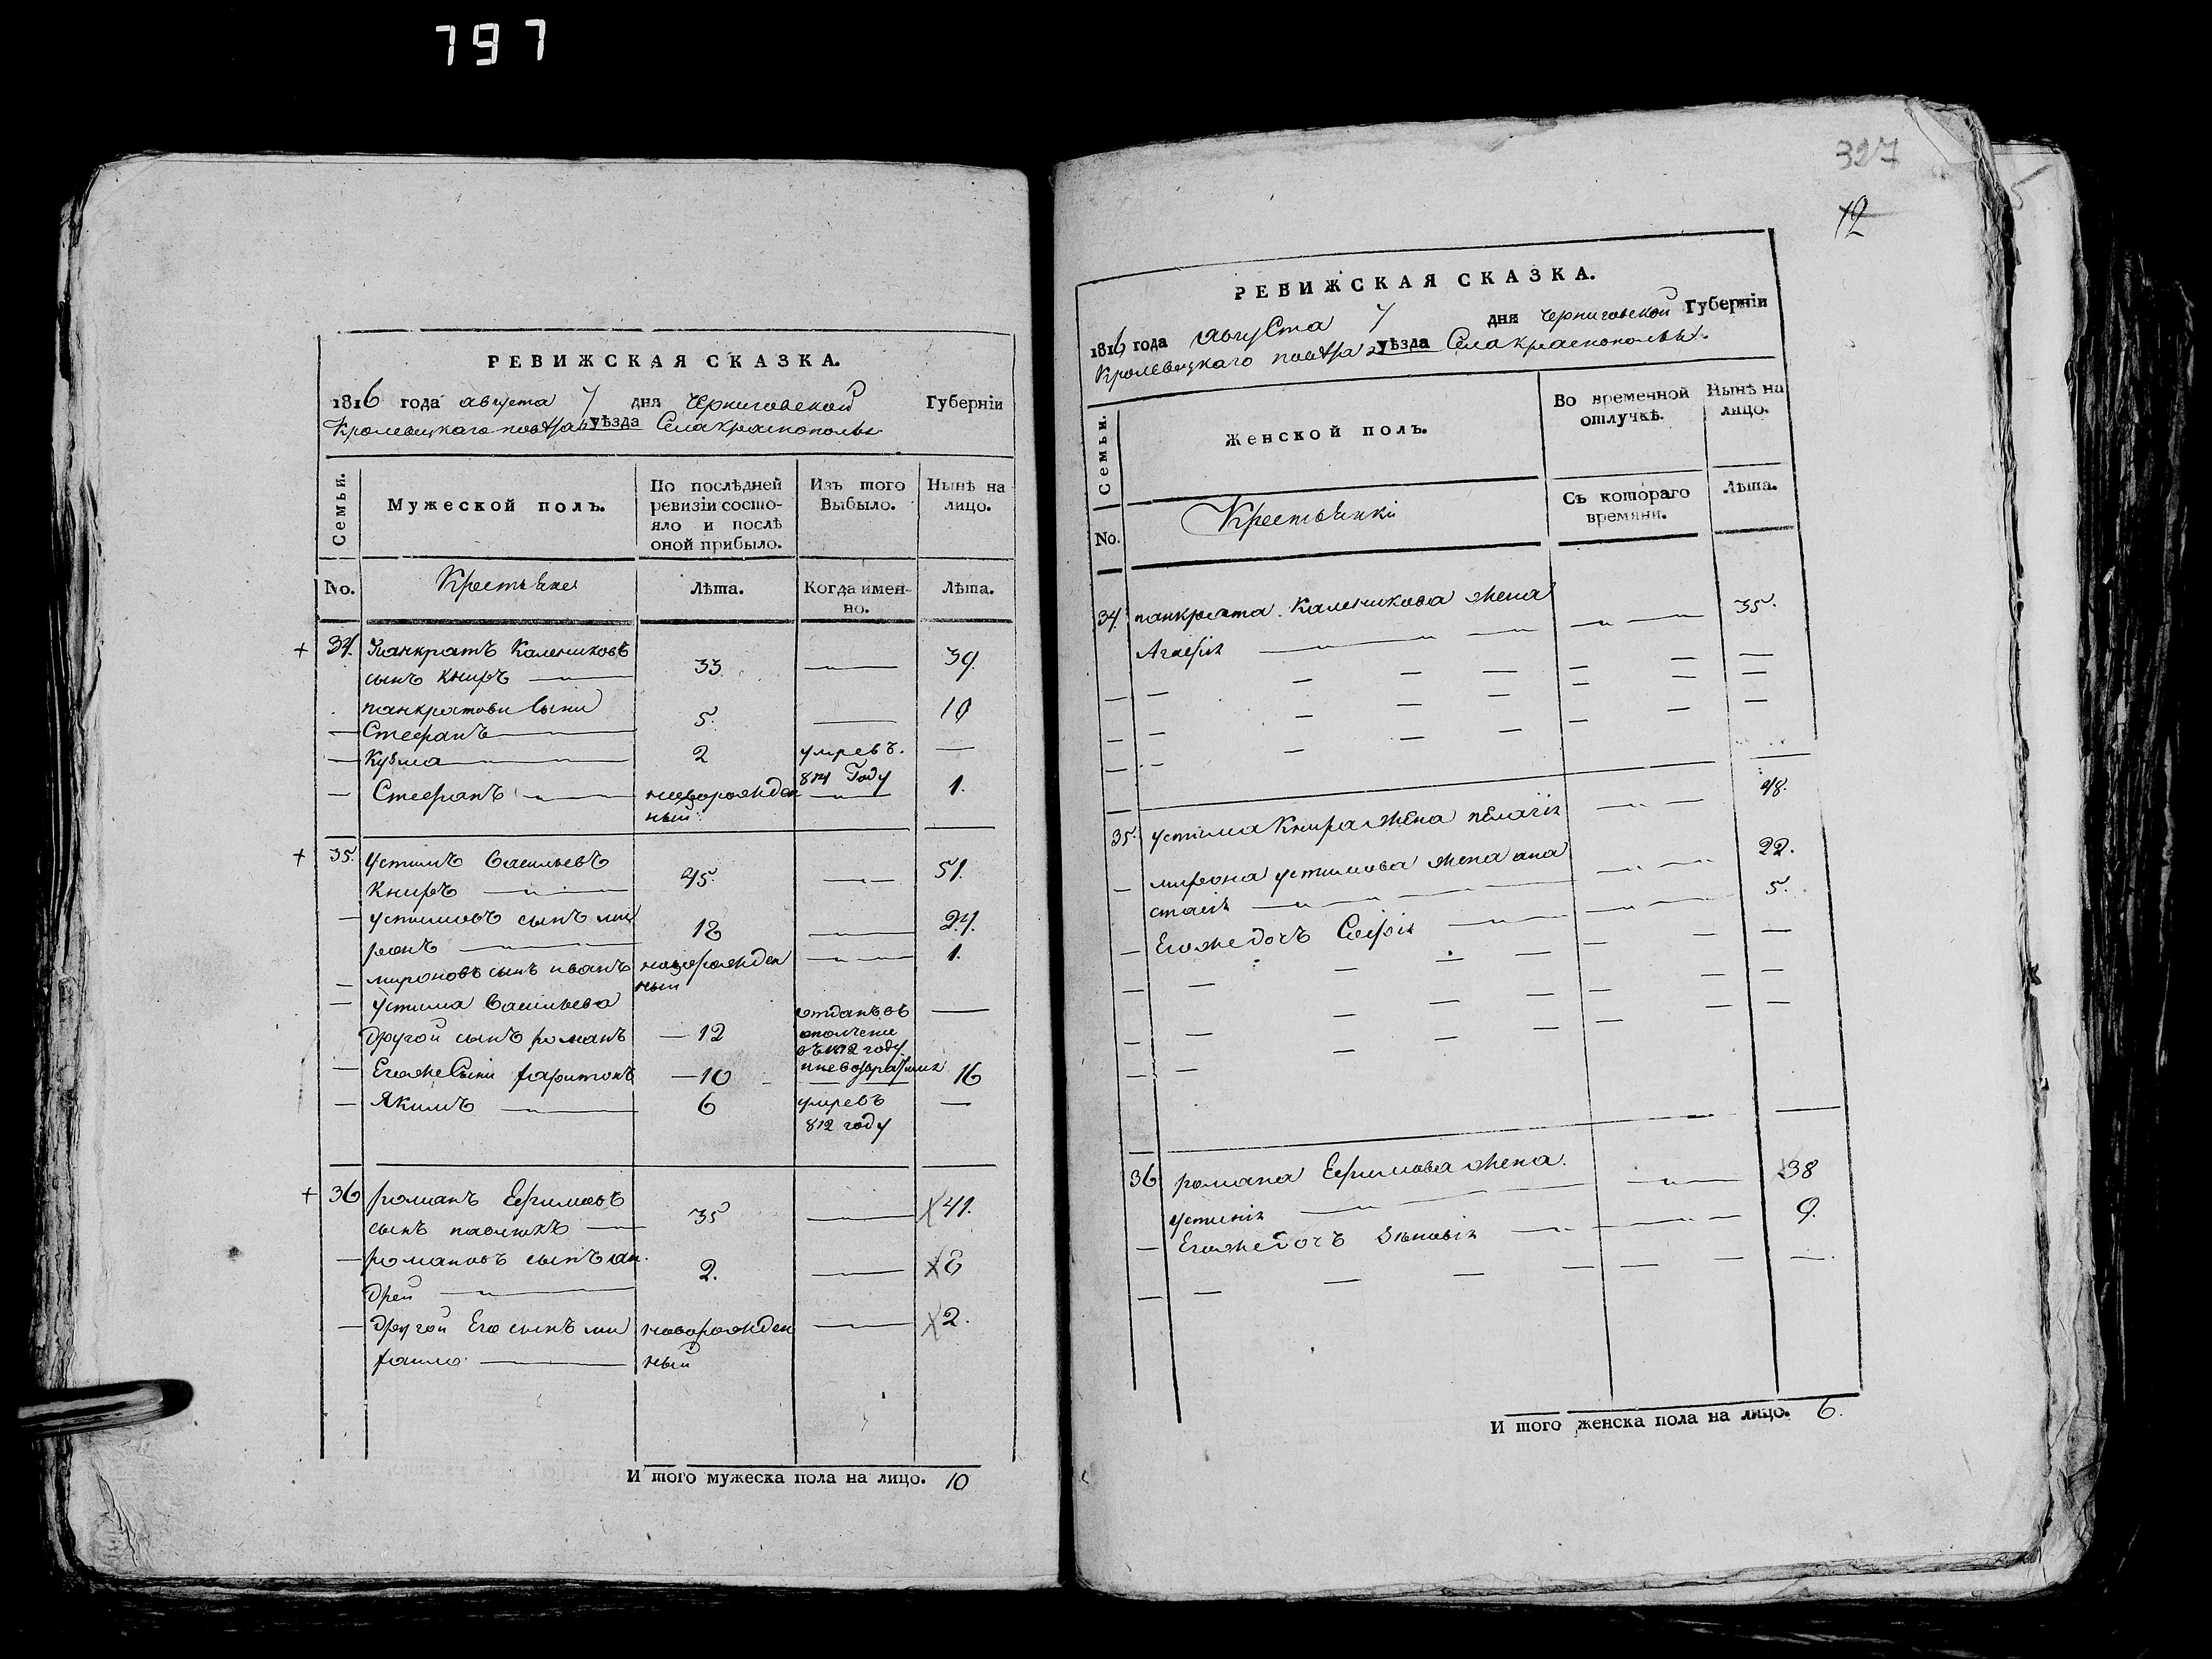 797
РЕВИЖСКАЯ СКАЗКА.
1816 года августа 7 дня Черниговской Губерніи
Кролевецкаго повѣта уѣзда Села краснополья
Семьи.
Мужеской полъ.
По послѣдней ревизіи состояло и послѣ оной прибыло.
Изъ того Выбыло.
Нынѣ на лицо.
No.
Крестьяне
Лѣта.
Когда именно.
Лѣта.
34. Панкратъ Калениковъ
сынъ книръ 33 39.
панкратови сыни
Стефанъ 5. 10
Кузма 2 умревъ.
814 Году
Стефанъ новорожден 1.
ный
35. Устимъ Васильевъ
Книръ 45. 51.
устимовъ сынъ ми
ронъ 18 24.
мироновъ сынъ иванъ новорожден 1.
ный
Устима Васильева
другой сынъ романъ 12 отданъ въ
ополчение
въ 1812 году
и невозвратился
Егоже Сыни харитонъ 10 16
Якимъ 6 умревъ
812 году
36 романъ Ефимовъ
сынъ павлюкъ 35 41.
романовъ сынъ ан
дрей 2. 8
другой Его сынъ ми новорожден 2.
хаило ный
И того мужеска пола на лицо. 10
327
12
РЕВИЖСКАЯ СКАЗКА.
1816 года августа 7 дня Черниговской Губерніи
Кролевецкаго повѣта уѣзда Села краснополья.
Семьи.
Женской полъ.
Во временной отлучкѣ.
Нынѣ на лицо.
No.
Крестьянки
Съ котораго времяни.
Лѣта.
34. панкрата Каленикова жена 35.
Агафія
35. устима Книра жена пелагія 48.
мирона устимова жена ана 22.
стасія
Егоже дочъ Софія 5.
36 романа Ефимова жена 38
устинія
Егоже дочъ Зѣновія 9.
И того женска пола на лицо. 6.